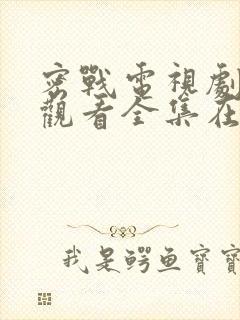 密戰電視劇
觀看全集在
我是鳄鱼寶寶